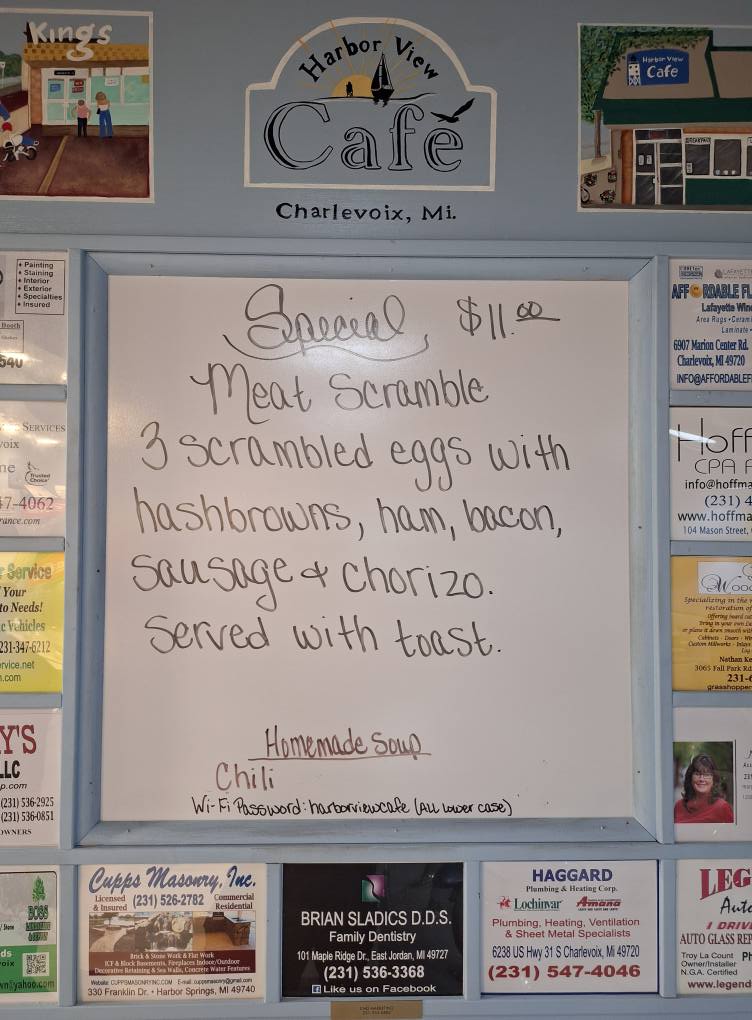 Kings
Harbor View
Café
Charlevoix, Mi.
Harbor View
Cafe
BREAKFAST
Special $11.00
Meat Scramble
3 scrambled eggs with
hashbrowns, ham, bacon,
sausage & chorizo.
Served with toast.
Homemade Soup
Chili
Wi-Fi Password: harborviewcafe (All lower case)
Painting
Staining
Interior
Exterior
Specialties
Insured
Booth
540
Services
voix
Trusted
Choice
47-4062
rance.com
r Service
f Your
to Needs!
c Vehicles
231-347-6212
ervice.net
n.com
Y'S
LLC
p.com
(231) 536-2925
(231) 536-0851
OWNERS
BOSS
Cupps Masonry, Inc.
Licensed
& Insured
(231) 526-2782
Commercial
Residential
Brick & Stone Work & Flat Work
ICF & Block Basements, Fireplaces Indoor/Outdoor
Decorative Retaining & Sea Walls, Concrete Water Features
Website: CUPPSMASONRYINC.COM E-mail: cuppsmasonry@gmail.com
330 Franklin Dr. • Harbor Springs, MI 49740
BRIAN SLADICS D.D.S.
Family Dentistry
101 Maple Ridge Dr., East Jordan, MI 49727
(231) 536-3368
Like us on Facebook
HAGGARD
Plumbing & Heating Corp.
Lochinvar
Amana
Plumbing, Heating, Ventilation
& Sheet Metal Specialists
6238 US Hwy 31 S Charlevoix, MI 49720
(231) 547-4046
LAFAYETTE
AFF RDABLE FL
Lafayette Wind
Area Rugs • Ceram
Laminate •
6907 Marion Center Rd.
Charlevoix, MI 49720
INFO@AFFORDABLEF
Hoff
CPA F
info@hoffma
(231) 4
www.hoffma
104 Mason Street,
Wood
Specializing in the
restoration of
Nathan Ke
3065 Fall Park Rd
231-6
grasshopper
LEG
Auto
I DRIVE
AUTO GLASS REP
Troy La Count
Owner/Installer
N.G.A. Certified
Ph
www.legend